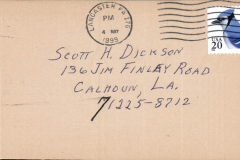 LANCASTER PA 176
PM
4 MAY
1999
USA
20
SCOTT H. DICKSON
136 JIM FINLEY ROAD
CALHOUN, LA.
71225-8712